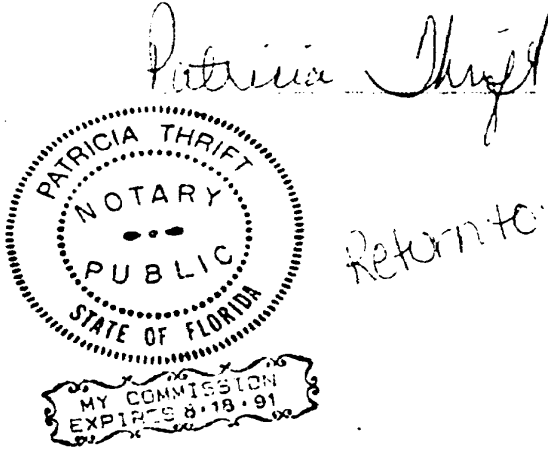 Patricia Thrift
PATRICIA THRIFT
NOTARY
PUBLIC
STATE OF FLORIDA
Return to:
MY COMMISSION
EXPIRES 8·18·91